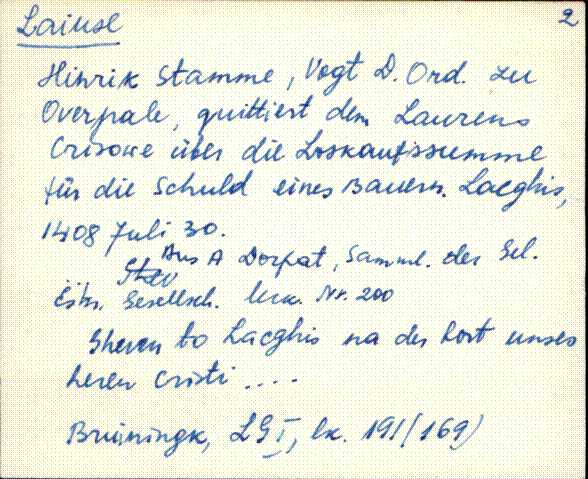 Laiuse 2
Hinrik Stamme, Vogt D. Ord. zu
Overpale, quittiert dem Laurens
Crisowe über die Loskaufssumme
für die Schuld eines Bauern. Laeghis,
1408 Juli 30.
Aus A Dorpat, Samml. der Gel.
Estn. Gesellsch. Urk. Nr. 200
Gheven to Laeghis na der bort unses
heren Cristi ....
Bruiningk, LG I, lk. 191 (169)